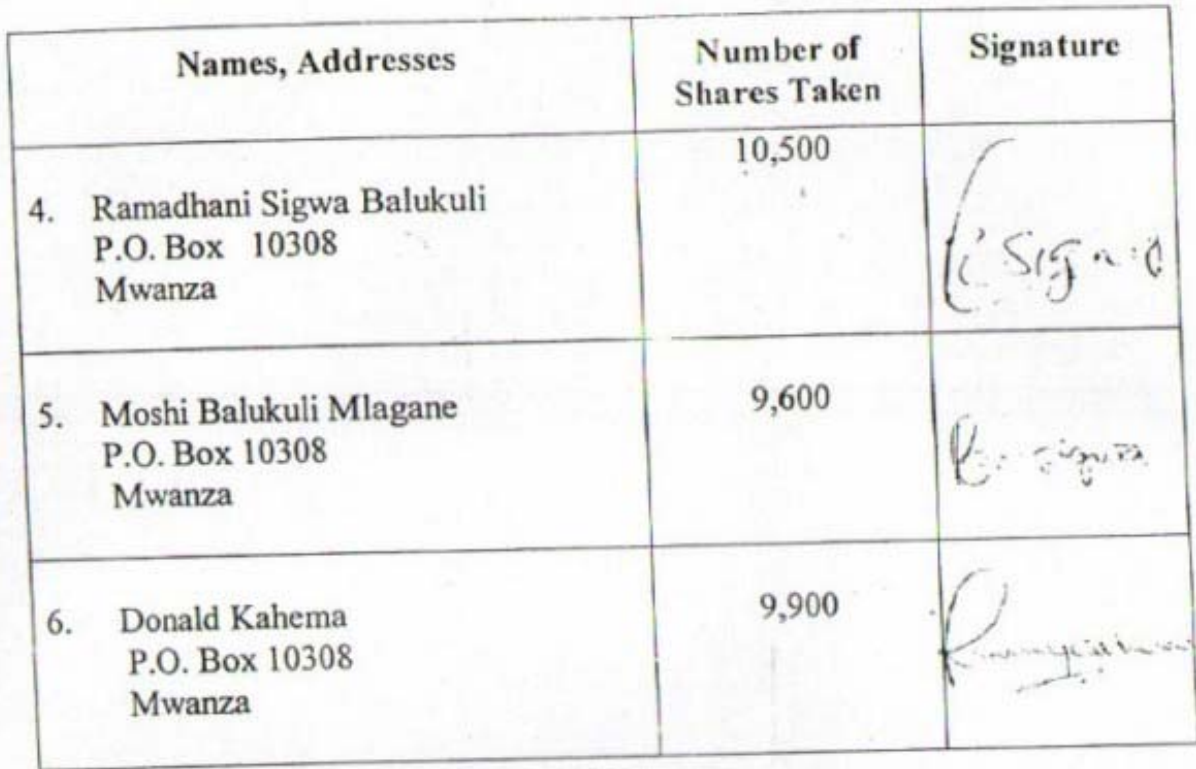 Names, Addresses
Number of
Shares Taken
Signature
4. Ramadhani Sigwa Balukuli
P.O. Box 10308
Mwanza
10,500
5. Moshi Balukuli Mlagane
P.O. Box 10308
Mwanza
9,600
6. Donald Kahema
P.O. Box 10308
Mwanza
9,900